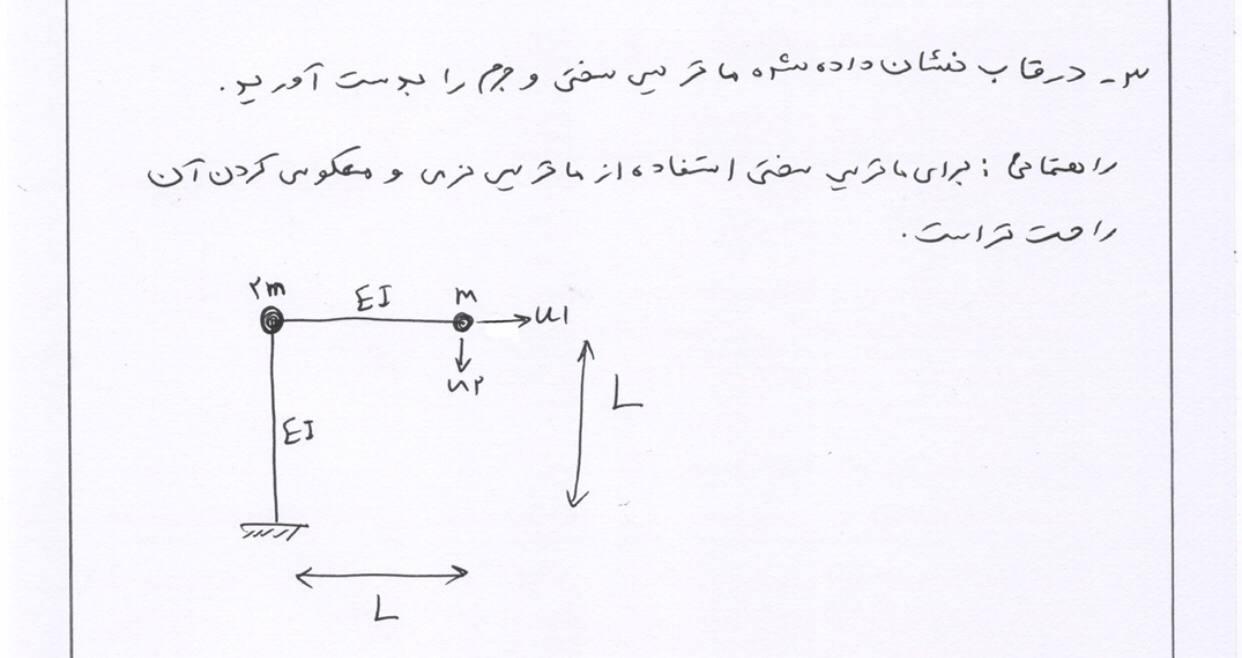 ۳- در قاب نشان داده شده ماتریس سختی و جرم را بدست آورید.
راهنمائی : برای ماتریس سختی استفاده از ماتریس نرمی و معکوس کردن آن
راحت تر است.
۲m EI m
u۱
u۲
L
EI
L